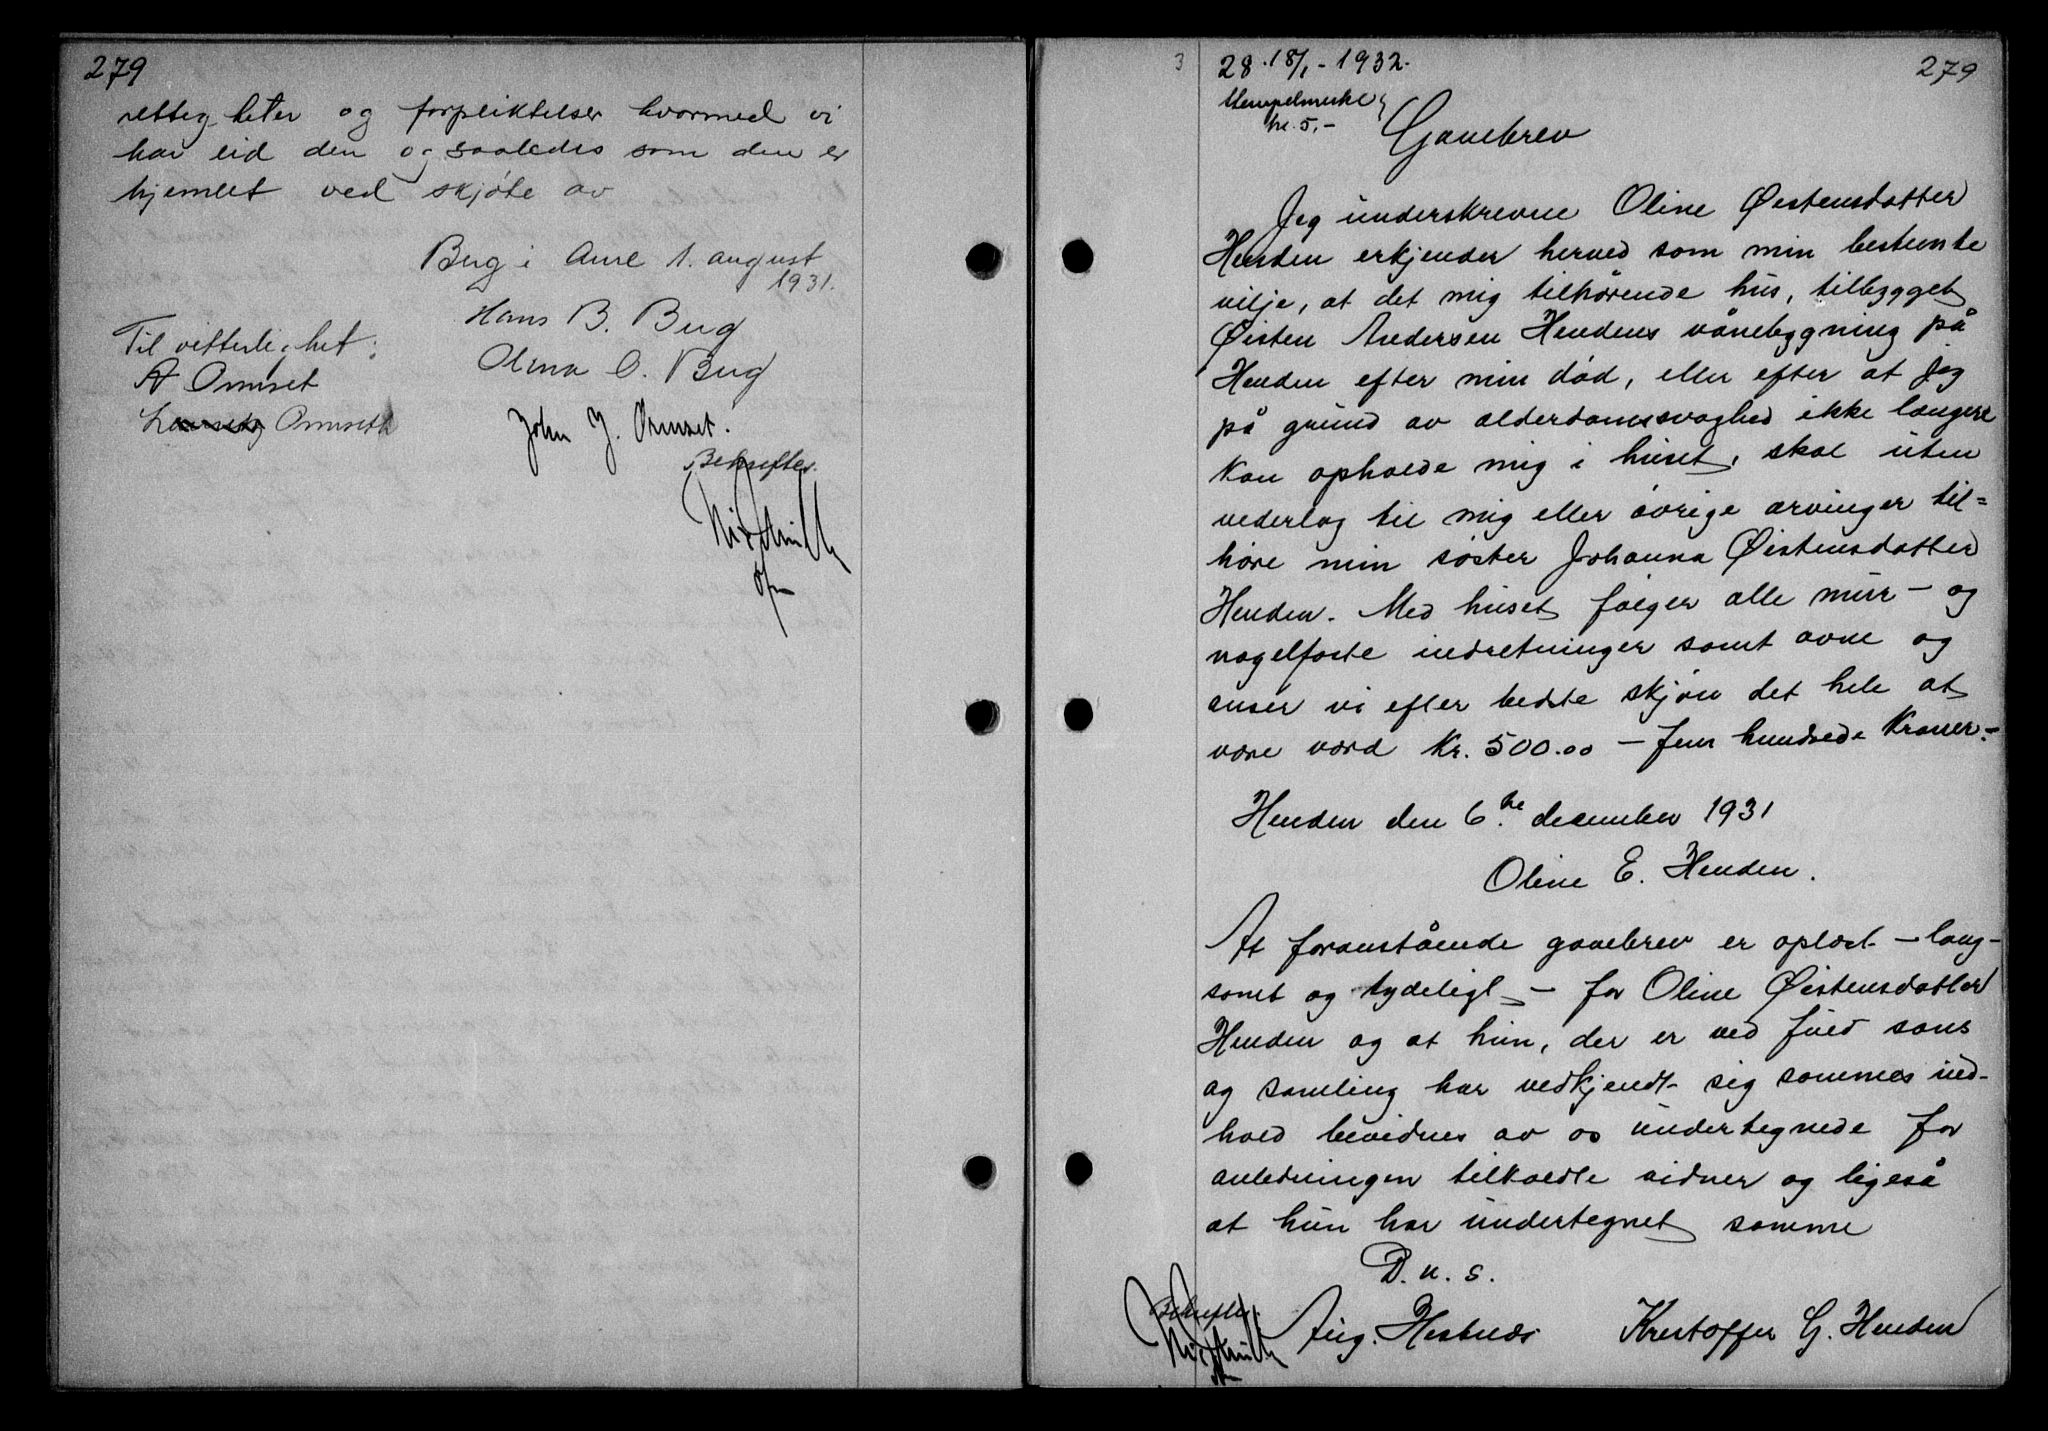 279
rettigheter og forpliktelser hvormed vi
har eid den og saaledes som den er
hjemlet ved skjøte av
Berg i Aure 1. august
1931.
Hans B. Berg
Olina O. Berg
Til vitterlighet:
A Ormset
Ormseth
John J. Ormset.
Bekreftes.
28. 18/1-1932.
279
Stempelmerke
kr. 5,-
Gavebrev
Jeg underskrevne Oline Østensdatter
Henden erkjender herved som min bestemte
vilje, at det mig tilhørende hus, tilbygget
Østen Andersen Hendens vånebygning på
Henden efter min død, eller efter at jeg
på grund av alderdomssvaghed ikke længere
kan opholde mig i huset, skal uten
vederlag til mig eller øvrige arvinger til=
høre min søster Johanna Østensdatter
Henden. Med huset følger alle mur- og
nagelfaste indretninger samt ovne og
anser vi efter bedste skjøn det hele at
være værd Kr. 500.00 - fem hundrede Kroner.-
Henden den 6.te december 1931
Oline E. Henden.
At foranstående gavebrev er oplæst - lang-
somt og tydeligt - for Oline Østensdatter
Henden og at hun, der er ved fuld sans
og samling har vedkjendt sig sammes ind-
hold bevidnes av os undertegnede for
anledningen tilkaldte vidner og ligeså
at hun har undertegnet samme
D. u. s.
Bekreftes.
Aug. Hestnes Kristoffer G. Henden